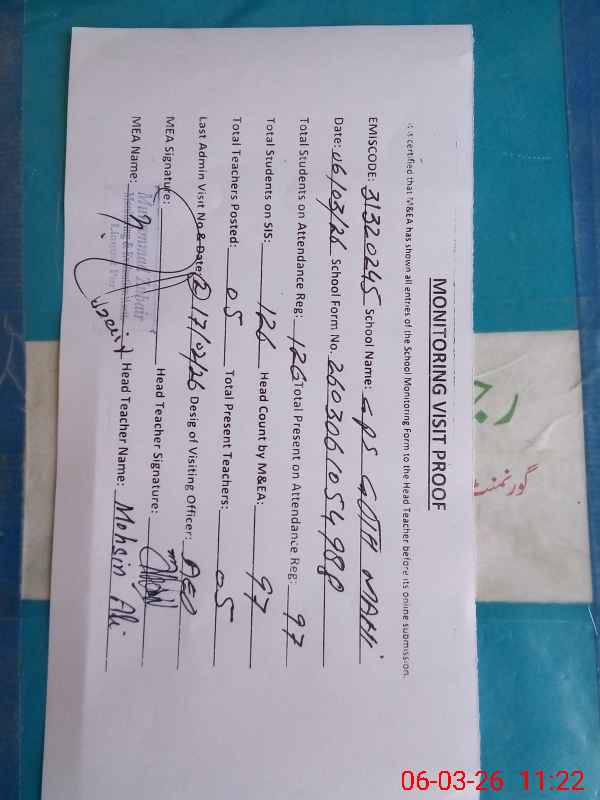 MONITORING VISIT PROOF
It is certified that M&EA has shown all entries of the School Monitoring Form to the Head Teacher before its online submission.
EMISCODE: 31320245 School Name: GPS GOTH MAHI
Date: 06/03/26 School Form No. 26030610549
Total Students on Attendance Reg: 126 Total Present on Attendance Reg: 97
Total Students on SIS: 126 Head Count by M&EA: 97
Total Teachers Posted: 05 Total Present Teachers: 05
Last Admin Visit No & Date: 2 17/02/26 Desig of Visiting Officer: AEO
MEA Signature: Head Teacher Signature:
MEA Name: Head Teacher Name: Mohsin Ali
Muhammad Zubair
گورنمنٹ
06-03-26 11:22